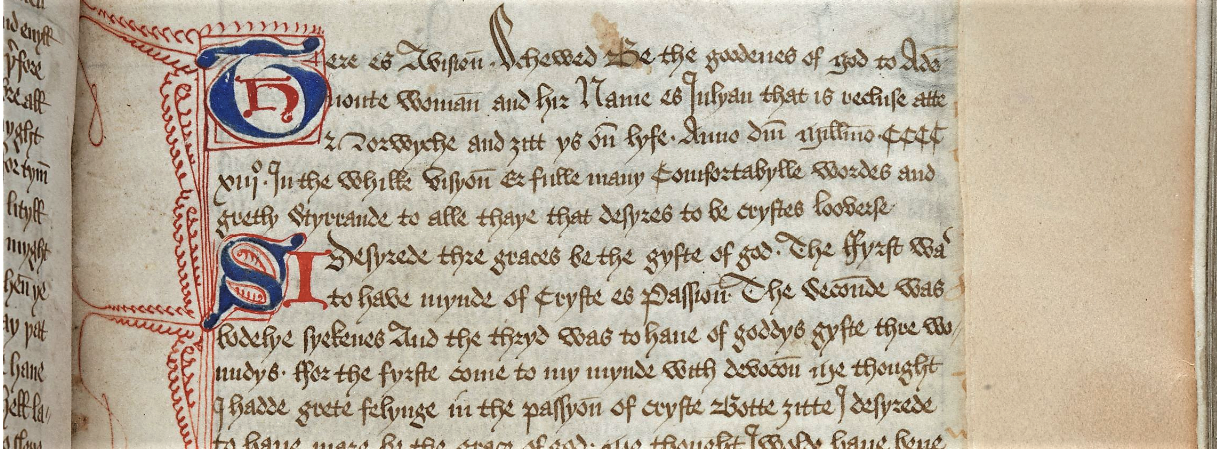 Here es Avisioun Schewed Be the goodenes of god to Ade
uoute Womann and hir Name es Julyan that is recluse atte
Norwyche and ȝitt ys oun lyfe. Anno dm̄ millmo CCCC
xiijº. In the whilke visyoun er fulle many Comfortabylle wordes and
gretly Styrrande to alle thaye that desyres to be crystes looverse
I Desyrede thre graces be the gyfte of god. The ffyrst was
to have mynde of Cryste es Passioun The secounde was
bodelye syekenes And the thryd was to haue of goddys gyfte thre wo
undys. ffor the fyrste come to my mynde with devocoun me thought
I hadde grete felynge in the passyoun of cryste Botte ȝitte I desyrede
to haue mare be the grace of god. me thought I wolde haue bene